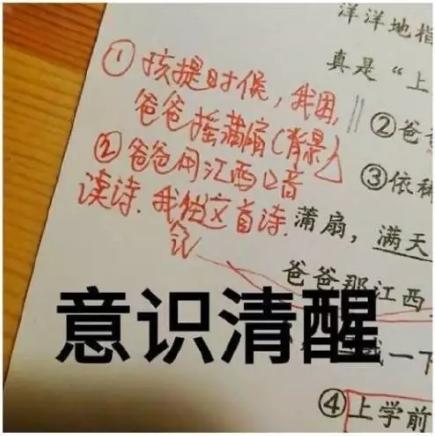 洋洋地指
真是“上
①孩提时候,我困,
爸爸摇蒲扇(背景)
②爸爸用江西口音
读诗.我但这首诗.
记
②爸爸
③依稀
蒲扇,满天
爸爸那江西
一下
④上学前
意识清醒